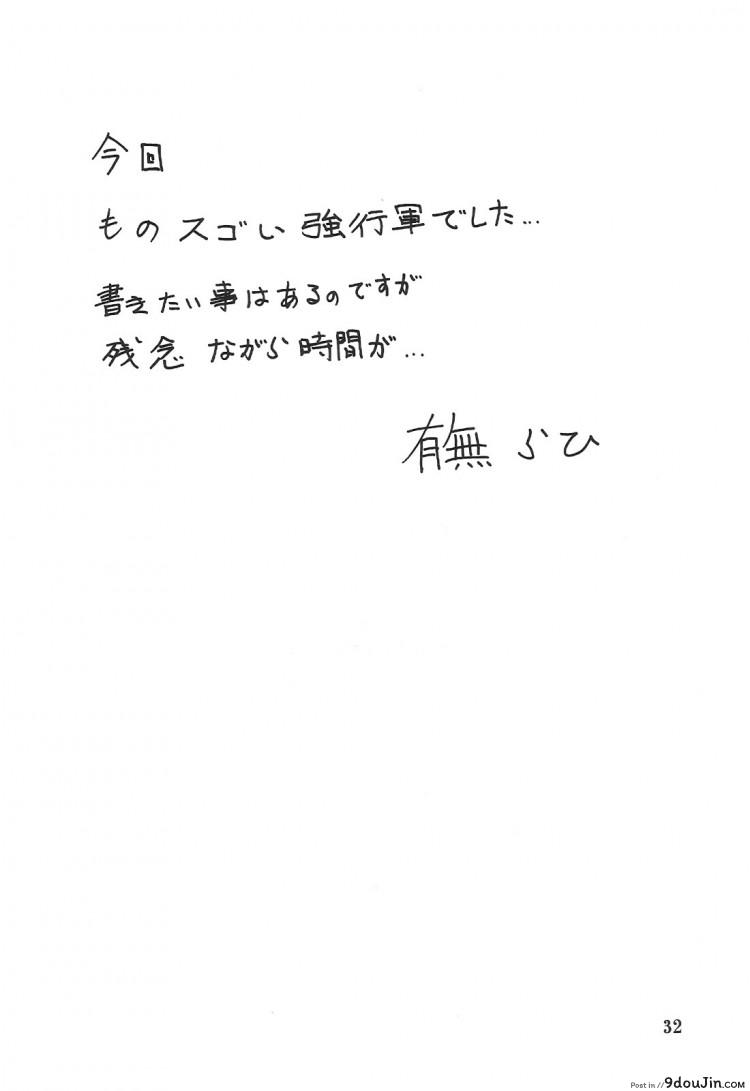 今回
ものスゴい強行軍でした...
書きたい事はあるのですが
残念ながら時間が...
有無らひ
32
Post in // 9douJin.com